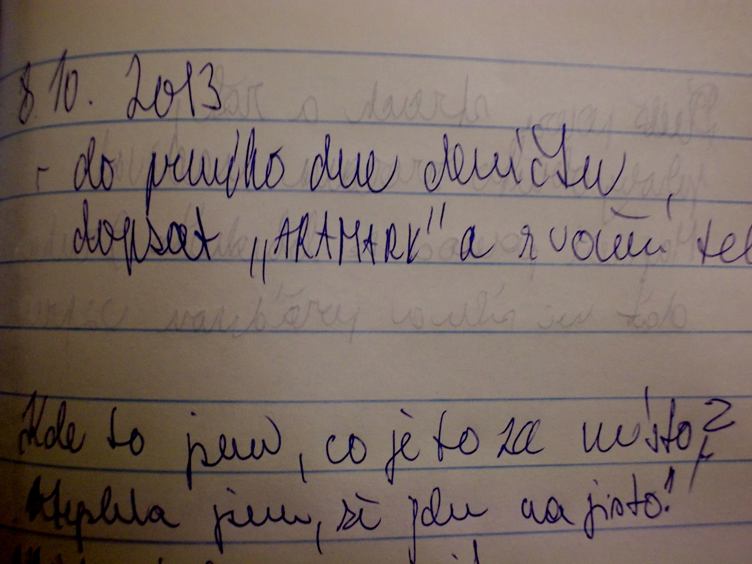 8.10. 2013
- do prvního dne deníčku,
dopsat „ARAMARK" a zvonění tel
Kde to jsem, co je to za místo?
jsem, že jdu na jisto!